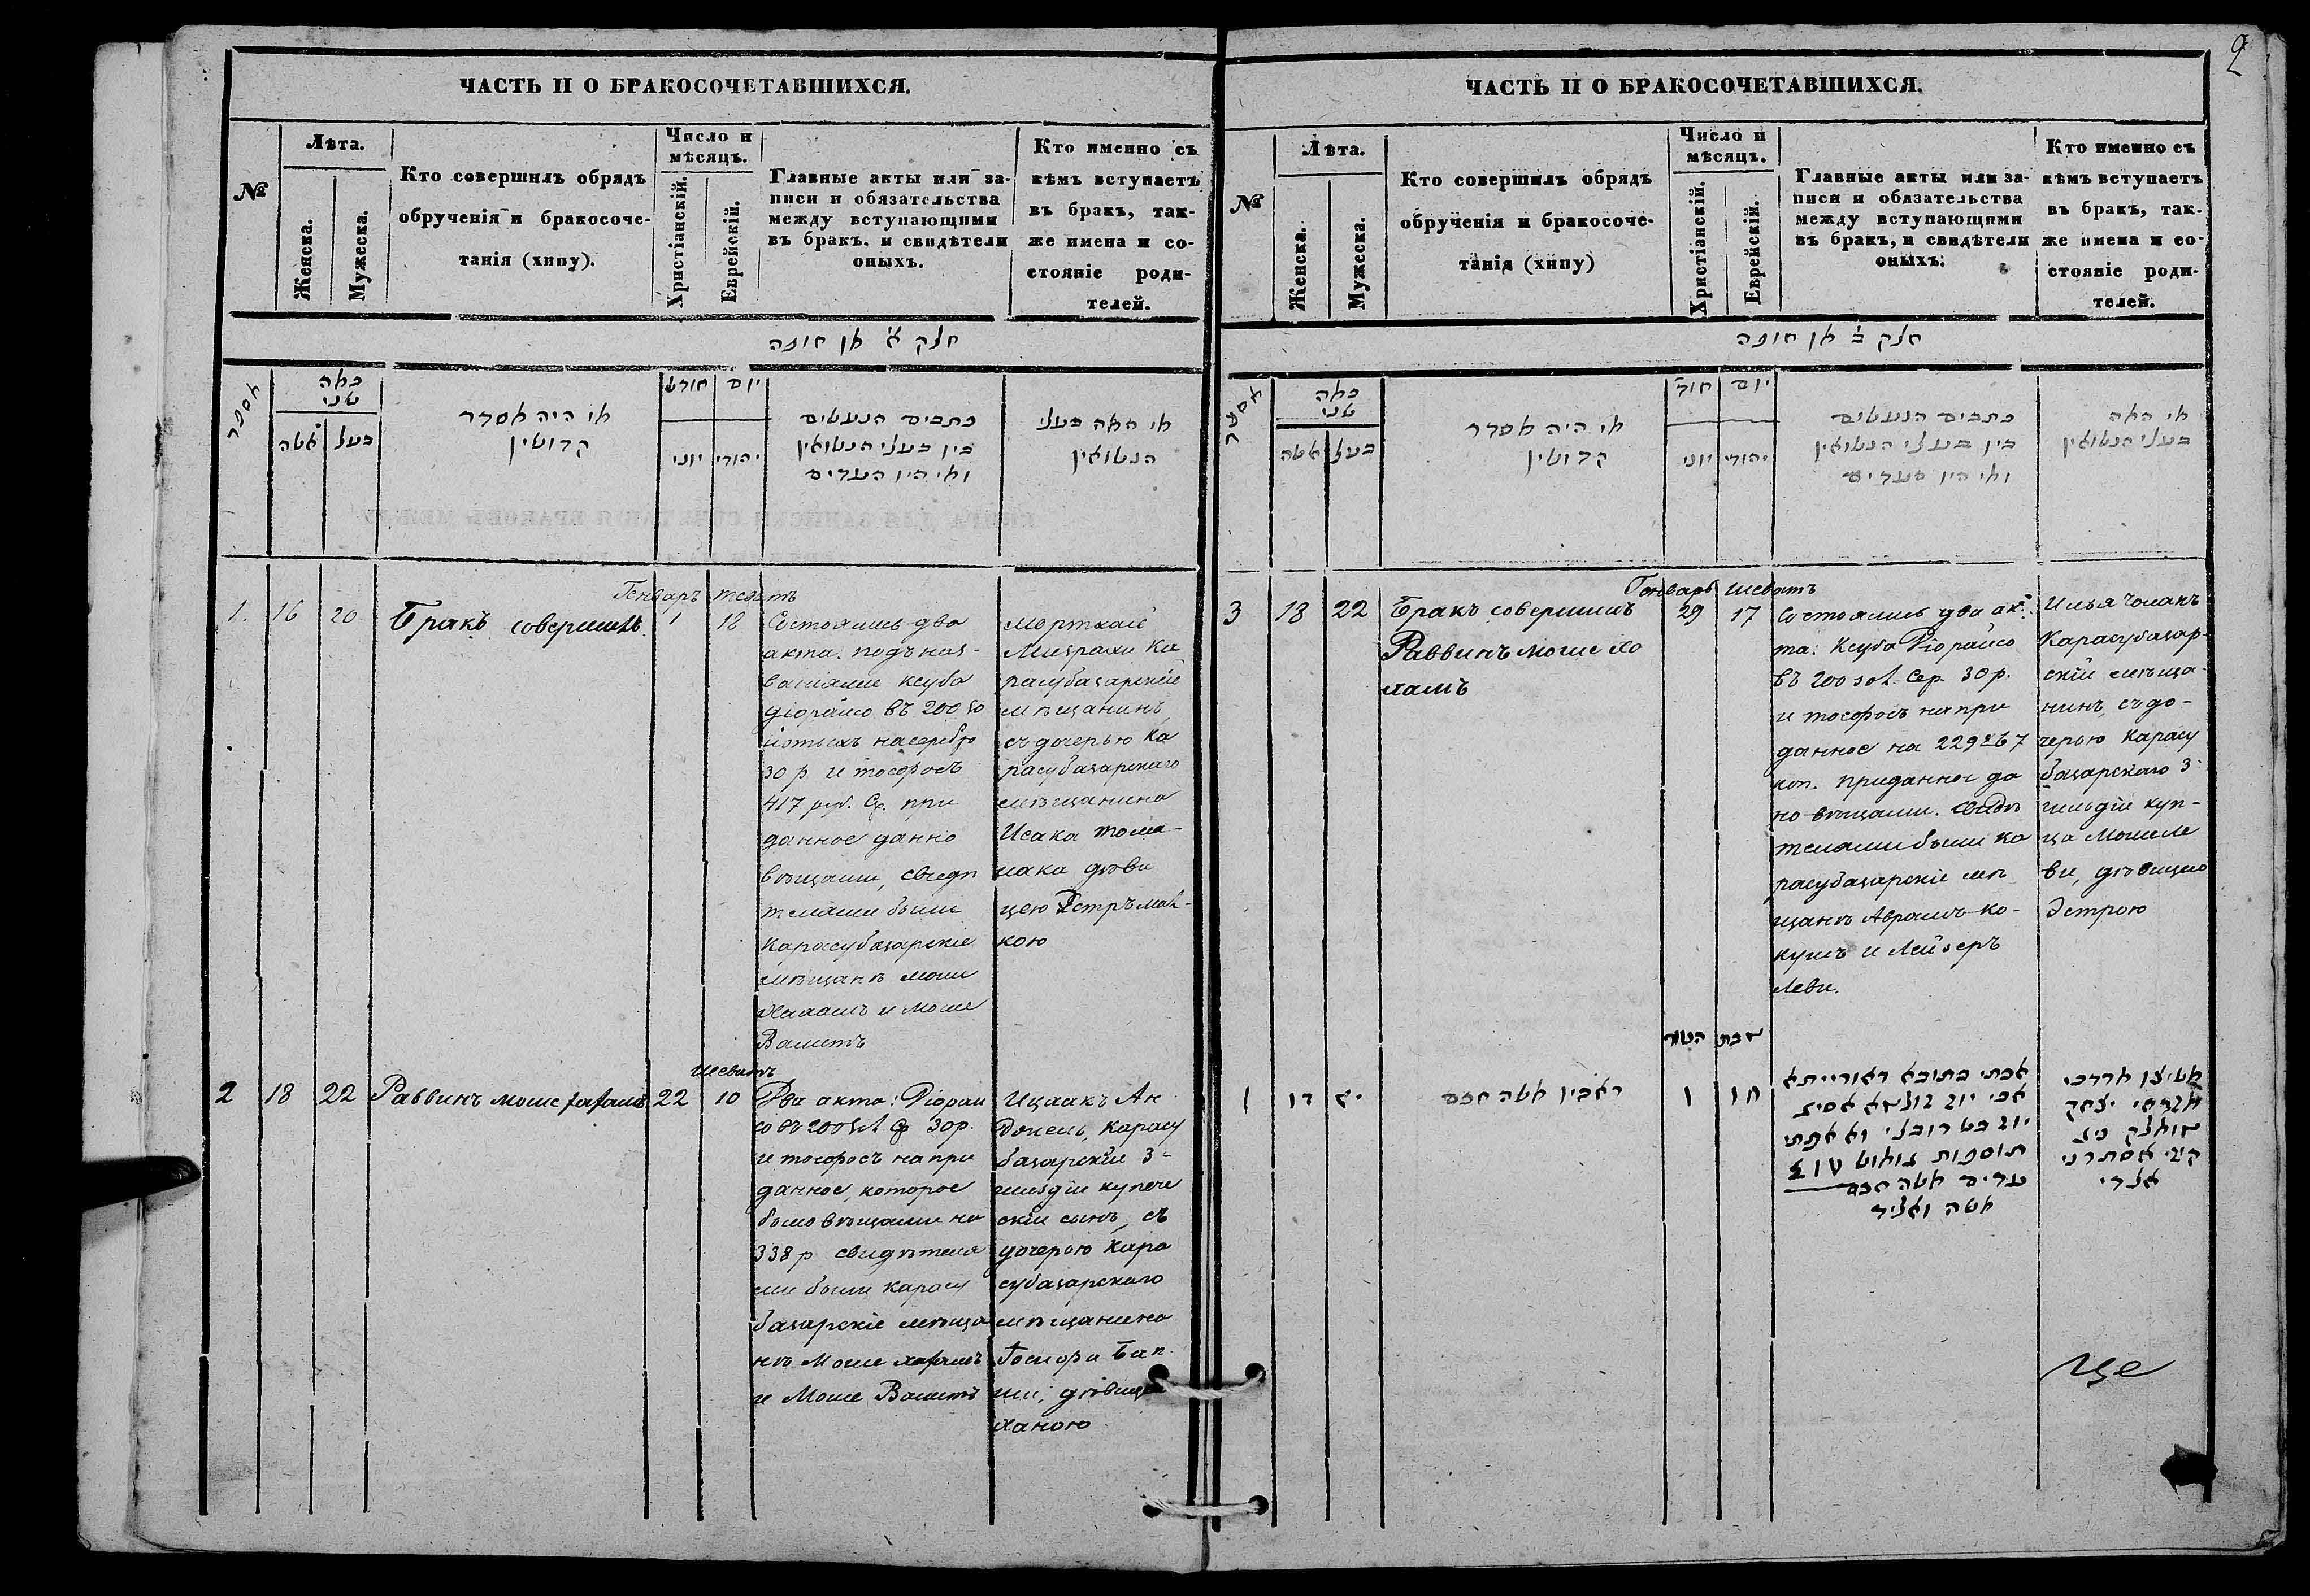 2
ЧАСТЬ II О БРАКОСОЧЕТАВШИХСЯ.
№
Лѣта.
Женска.
Мужеска.
Кто совершилъ обрядъ
обрученія и бракосоче-
танія (хипу).
Число и
мѣсяцъ.
Христіанскій.
Еврейскій.
Главные акты или за-
писи и обязательства
между вступающими
въ бракъ, и свидѣтели
оныхъ.
Кто именно съ
кѣмъ вступаетъ
въ бракъ, так-
же имена и со-
стояніе роди-
телей.
חלק א' און חופה
מספר
כמה
שני
בעל
אשה
מי היה מסדר
קדושין
חודש
יום
יוני
יהודי
כתבים הנעשים
בין בעלי הנשואין
ומי היו העדים
מי המה בעלי
הנשואין
Генварь
1. 16 20 Бракъ совершилъ 1 18
Состоялись два
акта: подъ наз-
ваніями ксуба
діорайсо въ 200 зо
лотыхъ на серебро
30 р. и тосфосъ
417 руб. Ср. при
данное данно
вѣщами, свидѣ
телями были
Карасубазарскіе
мѣщанѣ Моше
Хахамъ и Моше
Вамитъ
Мортхай
Мизрахи Ка
расубазарскій
мѣщанинъ,
съ дочерью Ка
расубазарскаго
мѣщанина
Исака Тома-
лака дѣви
цею Эстръ мал-
кою
Шеватъ
2 18 22 Раввинъ Моше Хахамъ 22 10
Два акта: Діорай
со въ 200 зл. Ср 30 р.
и тосфосъ на при
данное, которое
было вѣщами на
338 р свидѣтеля
ми были Карасу
базарскіе мѣща
нѣ Моше Хахамъ
и Моше Вамитъ
Ицаакъ Ан
Карасу
базарскій 3-
гильдіи купече
скій сынъ, съ
дочерью Кара
субазарскаго
мѣщанина
дѣвицею
Ханою
ЧАСТЬ II О БРАКОСОЧЕТАВШИХСЯ.
№
Лѣта.
Женска.
Мужеска.
Кто совершилъ обрядъ
обрученія и бракосоче-
танія (хипу)
Число и
мѣсяцъ.
Христіанскій.
Еврейскій.
Главные акты или за-
писи и обязательства
между вступающими
въ бракъ, и свидѣтели
оныхъ:
Кто именно съ
кѣмъ вступаетъ
въ бракъ, так-
же имена и со-
стояніе роди-
телей.
חלק ב' און חופה
מספר
כמה
שני
בעל
אשה
מי היה מסדר
קדושין
חוד'
יום
יוני
יהודי
כתבים הנעשים
בין בעלי הנשואין
ומי היו העדים
מי המה
בעלי הנשואין
Генварь Шеватъ
3 18 22 Бракъ совершилъ
Раввинъ Моше Ха
хамъ
29 17
Состоялись два ак-
та: Ксуба Діорайсо
въ 200 зол. Сер. 30 р.
и тосфосъ на при
данное на 229 р. 67
коп. приданное да
но вѣщами. Свидѣ
телями были Ка
расубазарскіе мѣ
щанѣ Аврамъ Ко-
кушъ и Лейзеръ
Леви.
Илья Чолакъ
Карасубазар-
скій мѣща-
нинъ, съ до-
черью Карасу
базарскаго 3-
гильдіи куп-
ца Моше Ле
ви, дѣвицею
Эстрою
ראבין משה חכם
1
כתובא דאורייתא
תוספות
עדים משה חכם